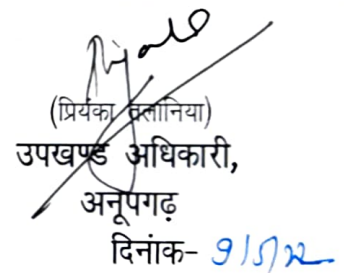 (प्रियंका तलानिया)
उपखण्ड अधिकारी,
अनूपगढ़
दिनांक- 9/5/22